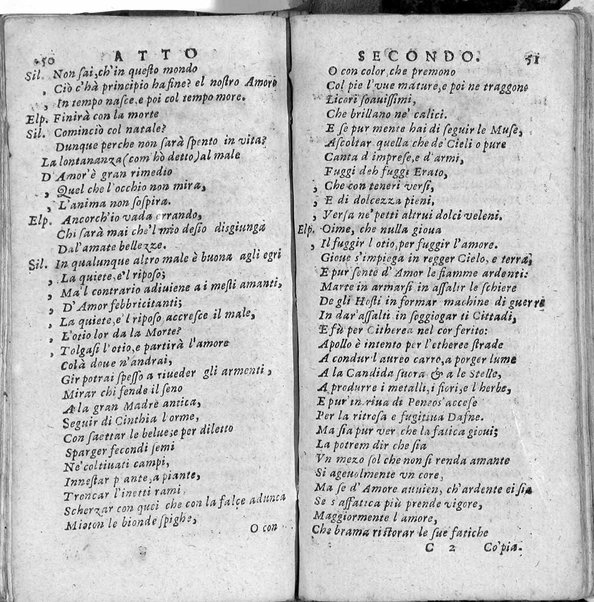 50 ATTO
Sil. Non sai, ch'in questo mondo
, Ciò c'hà principio ha fine? el nostro Amore
, In tempo nasce, e poi col tempo more.
Elp. Finirà con la morte
Sil. Cominciò col natale?
Dunque perche non sarà spento in vita?
La lontananza (com'hò detto) al male
D'Amor'è gran rimedio
, Quel che l'occhio non mira,
, L'anima non sospira.
Elp. Ancorch'io vada errando,
Chi sarà mai che'l mio desio disgiunga
Dal'amate bellezze.
Sil. In qualunque altro male è buona agli egri
, La quiete, e'l riposo;
, Ma'l contrario adiuiene a i mesti amanti,
, D'Amor febbricitanti;
, La quiete, e'l riposo, accresce il male,
, L'otio lor da la Morte?
, Tolgasi l'otio, e partirà l'amore
Colà doue n'andrai,
Gir potrai spesso a riueder gli armenti,
Mirar chi fende il seno
A la gran Madre antica,
Seguir di Cinthia l'orme,
Con saettar le belue; per diletto
Sparger fecondi semi
Ne'coltiuati campi,
Innestar piante, a piante,
Troncar l'inetti rami,
Scherzar con quei che con la falce adunca
Mieton le bionde spighe,
O con
SECONDO. 51
O con color, che premono
Col pie l'vue mature, e poi ne traggono
Licori soauissimi,
Che brillano ne' calici.
E se pur mente hai di seguir le Muse,
Ascoltar quella che de'Cieli o pure
Canta d'imprese, e d'armi,
Fuggi deh fuggi Erato,
, Che con teneri versi,
, E di dolcezza pieni,
, Versa ne'petti altrui dolci veleni.
Elp. Oime, che nulla gioua
, Il fuggir l'otio, per fuggir l'amore.
Gioue s'impiega in regger Cielo, e terra;
E pur sente d'Amor le fiamme ardenti:
Marte in armarsi in assalir le schiere
De gli Hosti in formar machine di guerra
In dar'assalti in seggiogar ti Cittadi,
E fù per Citherea nel cor ferito:
Apollo è intento per l'etheree strade
A condur l'aureo carro, a porger lume
A la Candida suora & a le Stelle,
A produrre i metalli, i fiori, e l'herbe,
E pur'in riua di Peneo s'accese
Per la ritrosa e fugitiua Dafne.
Ma sia pur ver che la fatica gioui;
La potrem dir che sia
Vn mezo sol che non si renda amante
Si ageuolmente vn core,
Ma se d'Amore auuien, ch'ardente ei sia
Se s'affatica più prende vigore,
Maggiormente l'amore,
Che brama ristorar le sue fatiche
C 2 Co'pia-